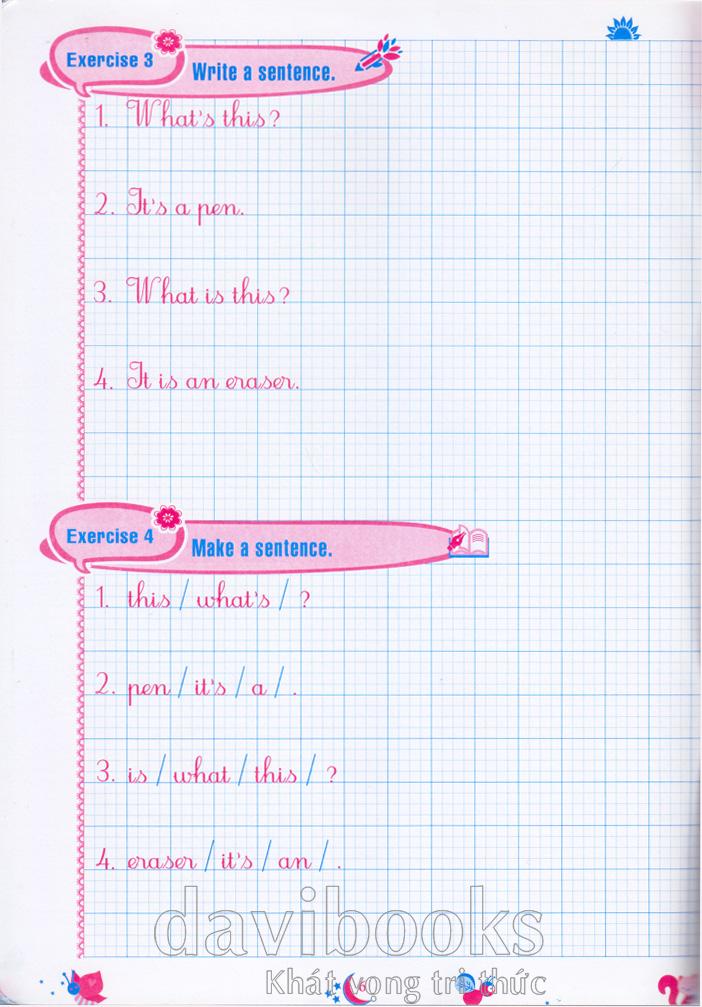 Exercise 3
Write a sentence.
1. What's this?
2. It's a pen.
3. What is this?
4. It is an eraser.
Exercise 4
Make a sentence.
1. this / what's / ?
2. pen / it's / a / .
3. is / what / this / ?
4. eraser / it's / an / .
davibooks
Khát vọng tri thức